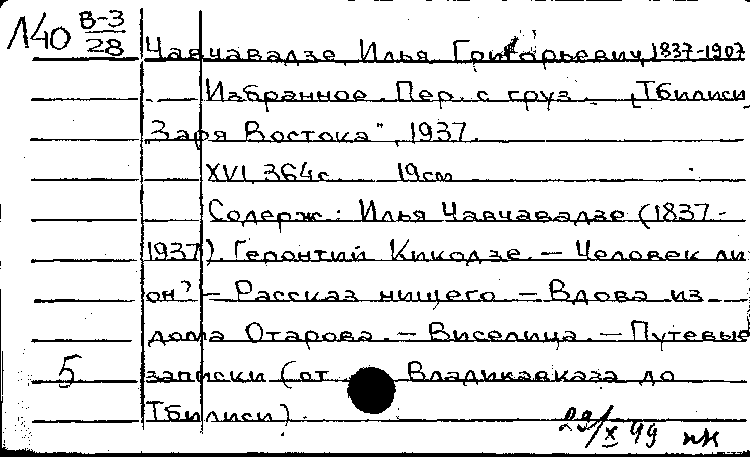 Л40 В-3
28
Чавчавадзе, Илья Григорьевич, 1837-1907
Избранное. Пер. с груз. [Тбилиси,
"Заря Востока", 1937.
XVI, 364с. 19см
Содерж.: Илья Чавчавадзе (1837-
1937). Геронтий Кикодзе. – Человек ли
он? – Рассказ нищего. – Вдова из
дома Отарова. – Виселица. – Путевые
5 записки (от Владикавказа до
Тбилиси).
29/X 99 нк